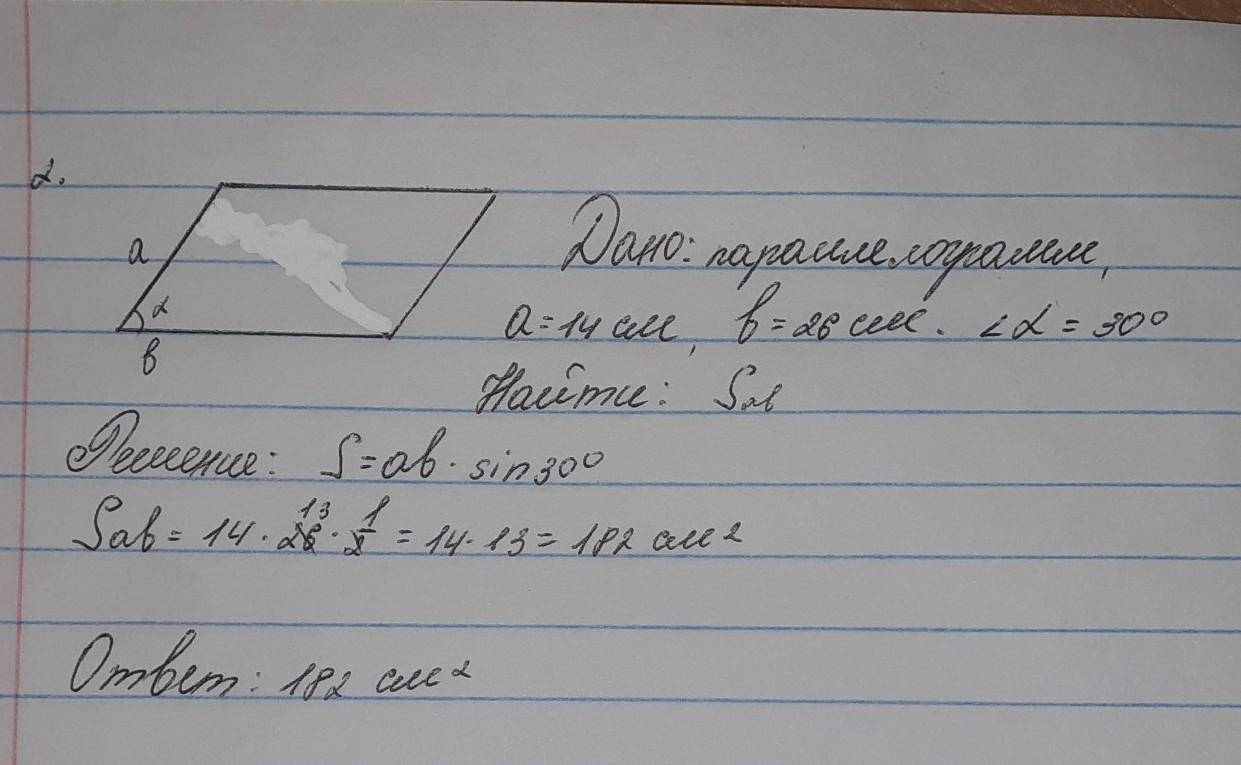 2.
a
α
b
Дано: параллелограмм,
a = 14 см, b = 26 см. ∠α = 30°
Найти: Sab
Решение: S = ab · sin30°
Sab = 14 · 26 13 · 1/2 = 14 · 13 = 182 см²
Ответ: 182 см²